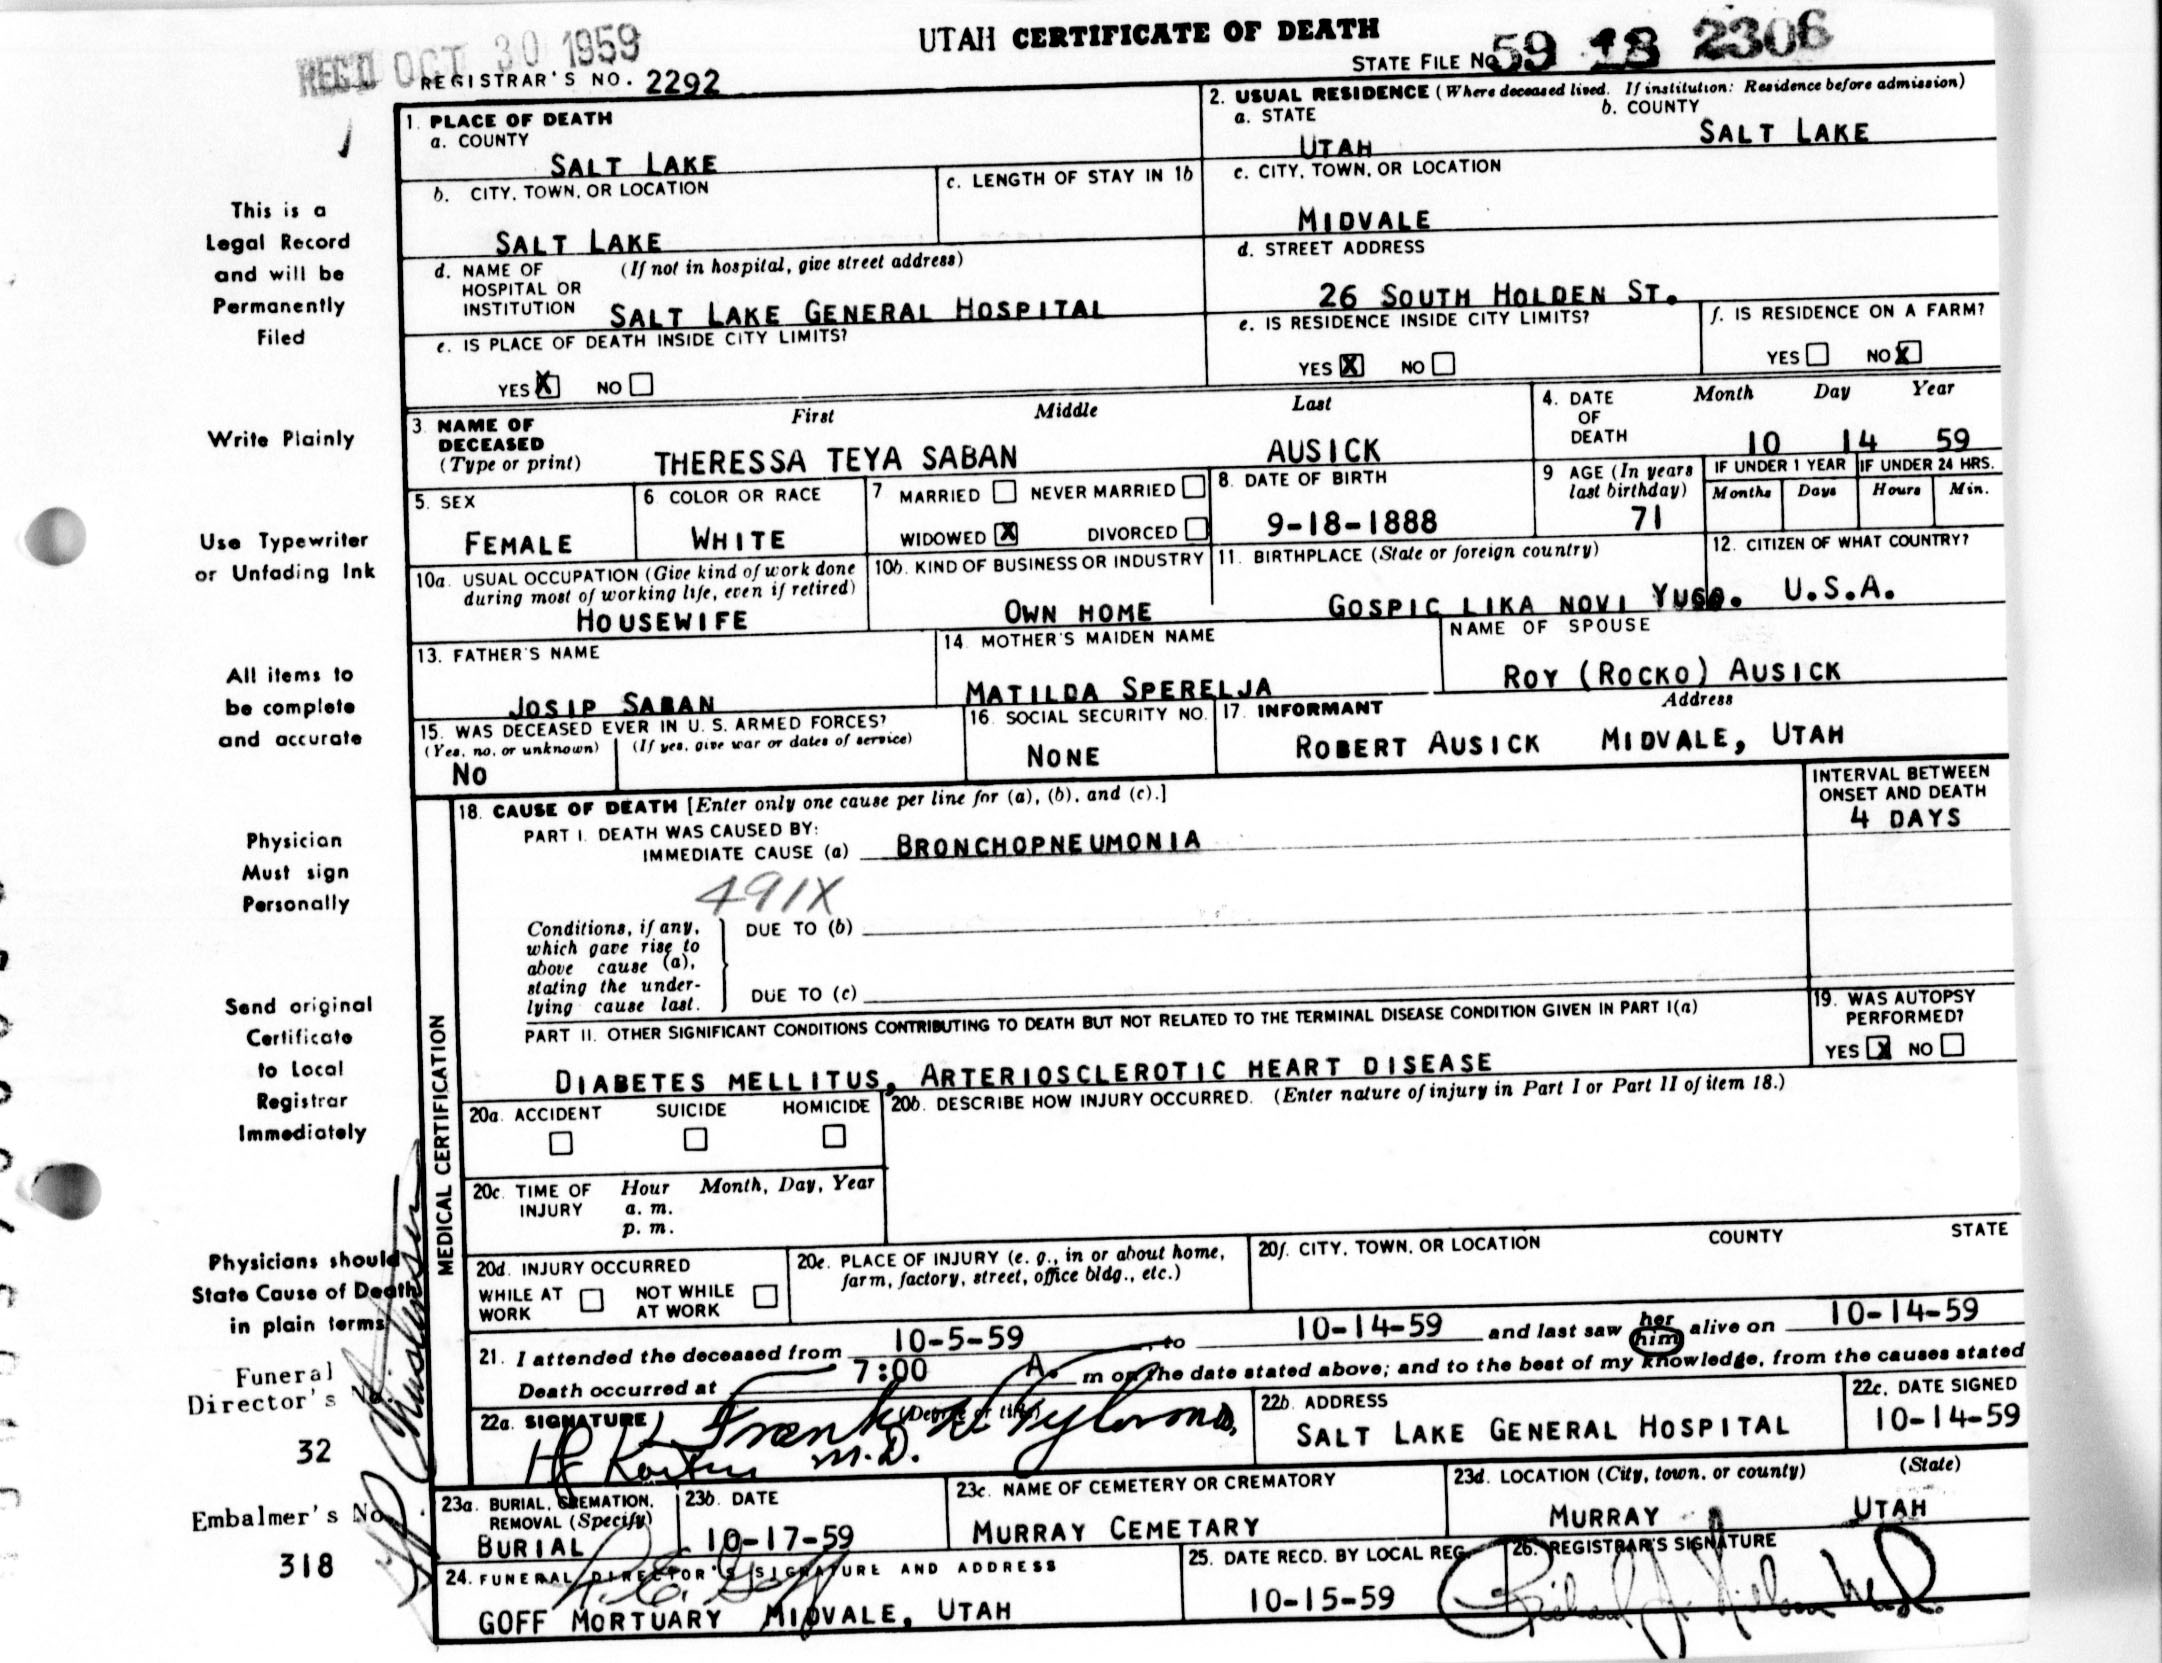 UTAH CERTIFICATE OF DEATH
REC'D OCT 30 1959
STATE FILE No. 59 18 2306
REGISTRAR'S NO. 2292
This is a
Legal Record
and will be
Permanently
Filed
Write Plainly
Use Typewriter
or Unfading Ink
All items to
be complete
and accurate
Physician
Must sign
Personally
Send original
Certificate
to Local
Registrar
Immediately
Physicians should
State Cause of Death
in plain terms
Funeral
Director's No
32
Embalmer's No.
318
1. PLACE OF DEATH
a. COUNTY
SALT LAKE
b. CITY, TOWN, OR LOCATION
SALT LAKE
c. LENGTH OF STAY IN 1b
d. NAME OF HOSPITAL OR INSTITUTION (If not in hospital, give street address)
SALT LAKE GENERAL HOSPITAL
e. IS PLACE OF DEATH INSIDE CITY LIMITS?
YES X NO
2. USUAL RESIDENCE (Where deceased lived. If institution: Residence before admission)
a. STATE
UTAH
b. COUNTY
SALT LAKE
c. CITY, TOWN, OR LOCATION
MIDVALE
d. STREET ADDRESS
26 SOUTH HOLDEN ST.
e. IS RESIDENCE INSIDE CITY LIMITS?
YES X NO
f. IS RESIDENCE ON A FARM?
YES NO X
3. NAME OF DECEASED (Type or print)
First Middle Last
THERESSA TEYA SABAN AUSICK
4. DATE OF DEATH
Month Day Year
10 14 59
5. SEX
FEMALE
6 COLOR OR RACE
WHITE
7 MARRIED NEVER MARRIED
WIDOWED X DIVORCED
8. DATE OF BIRTH
9-18-1888
9 AGE (In years last birthday)
71
IF UNDER 1 YEAR
Months Days
IF UNDER 24 HRS.
Hours Min.
10a. USUAL OCCUPATION (Give kind of work done during most of working life, even if retired)
HOUSEWIFE
10b. KIND OF BUSINESS OR INDUSTRY
OWN HOME
11. BIRTHPLACE (State or foreign country)
GOSPIC LIKA NOVI YUGO.
12. CITIZEN OF WHAT COUNTRY?
U.S.A.
13. FATHER'S NAME
JOSIP SABAN
14. MOTHER'S MAIDEN NAME
MATILDA SPERELJA
NAME OF SPOUSE
ROY (ROCKO) AUSICK
15. WAS DECEASED EVER IN U.S. ARMED FORCES?
(Yes, no, or unknown) (If yes, give war or dates of service)
NO
16. SOCIAL SECURITY NO.
NONE
17. INFORMANT Address
ROBERT AUSICK MIDVALE, UTAH
MEDICAL CERTIFICATION
18. CAUSE OF DEATH [Enter only one cause per line for (a), (b), and (c).]
INTERVAL BETWEEN ONSET AND DEATH
PART I. DEATH WAS CAUSED BY:
IMMEDIATE CAUSE (a) BRONCHOPNEUMONIA
4 DAYS
491X
Conditions, if any, which gave rise to above cause (a), stating the underlying cause last.
DUE TO (b)
DUE TO (c)
PART II. OTHER SIGNIFICANT CONDITIONS CONTRIBUTING TO DEATH BUT NOT RELATED TO THE TERMINAL DISEASE CONDITION GIVEN IN PART I(a)
DIABETES MELLITUS, ARTERIOSCLEROTIC HEART DISEASE
19. WAS AUTOPSY PERFORMED?
YES X NO
20a. ACCIDENT SUICIDE HOMICIDE
20b. DESCRIBE HOW INJURY OCCURRED. (Enter nature of injury in Part I or Part II of item 18.)
20c. TIME OF INJURY
Hour Month, Day, Year
a. m.
p. m.
20d. INJURY OCCURRED
WHILE AT WORK NOT WHILE AT WORK
20e. PLACE OF INJURY (e. g., in or about home, farm, factory, street, office bldg., etc.)
20f. CITY, TOWN, OR LOCATION COUNTY STATE
21. I attended the deceased from 10-5-59, to 10-14-59 and last saw her him alive on 10-14-59
Death occurred at 7:00 A. m on the date stated above; and to the best of my knowledge, from the causes stated
22a. SIGNATURE (Degree or title)
Frank M.D.
22b. ADDRESS
SALT LAKE GENERAL HOSPITAL
22c. DATE SIGNED
10-14-59
23a. BURIAL, CREMATION, REMOVAL (Specify)
BURIAL
23b. DATE
10-17-59
23c. NAME OF CEMETERY OR CREMATORY
MURRAY CEMETARY
23d. LOCATION (City, town, or county) (State)
MURRAY UTAH
24. FUNERAL DIRECTOR'S SIGNATURE AND ADDRESS
GOFF MORTUARY MIDVALE, UTAH
25. DATE RECD. BY LOCAL REG.
10-15-59
26. REGISTRAR'S SIGNATURE